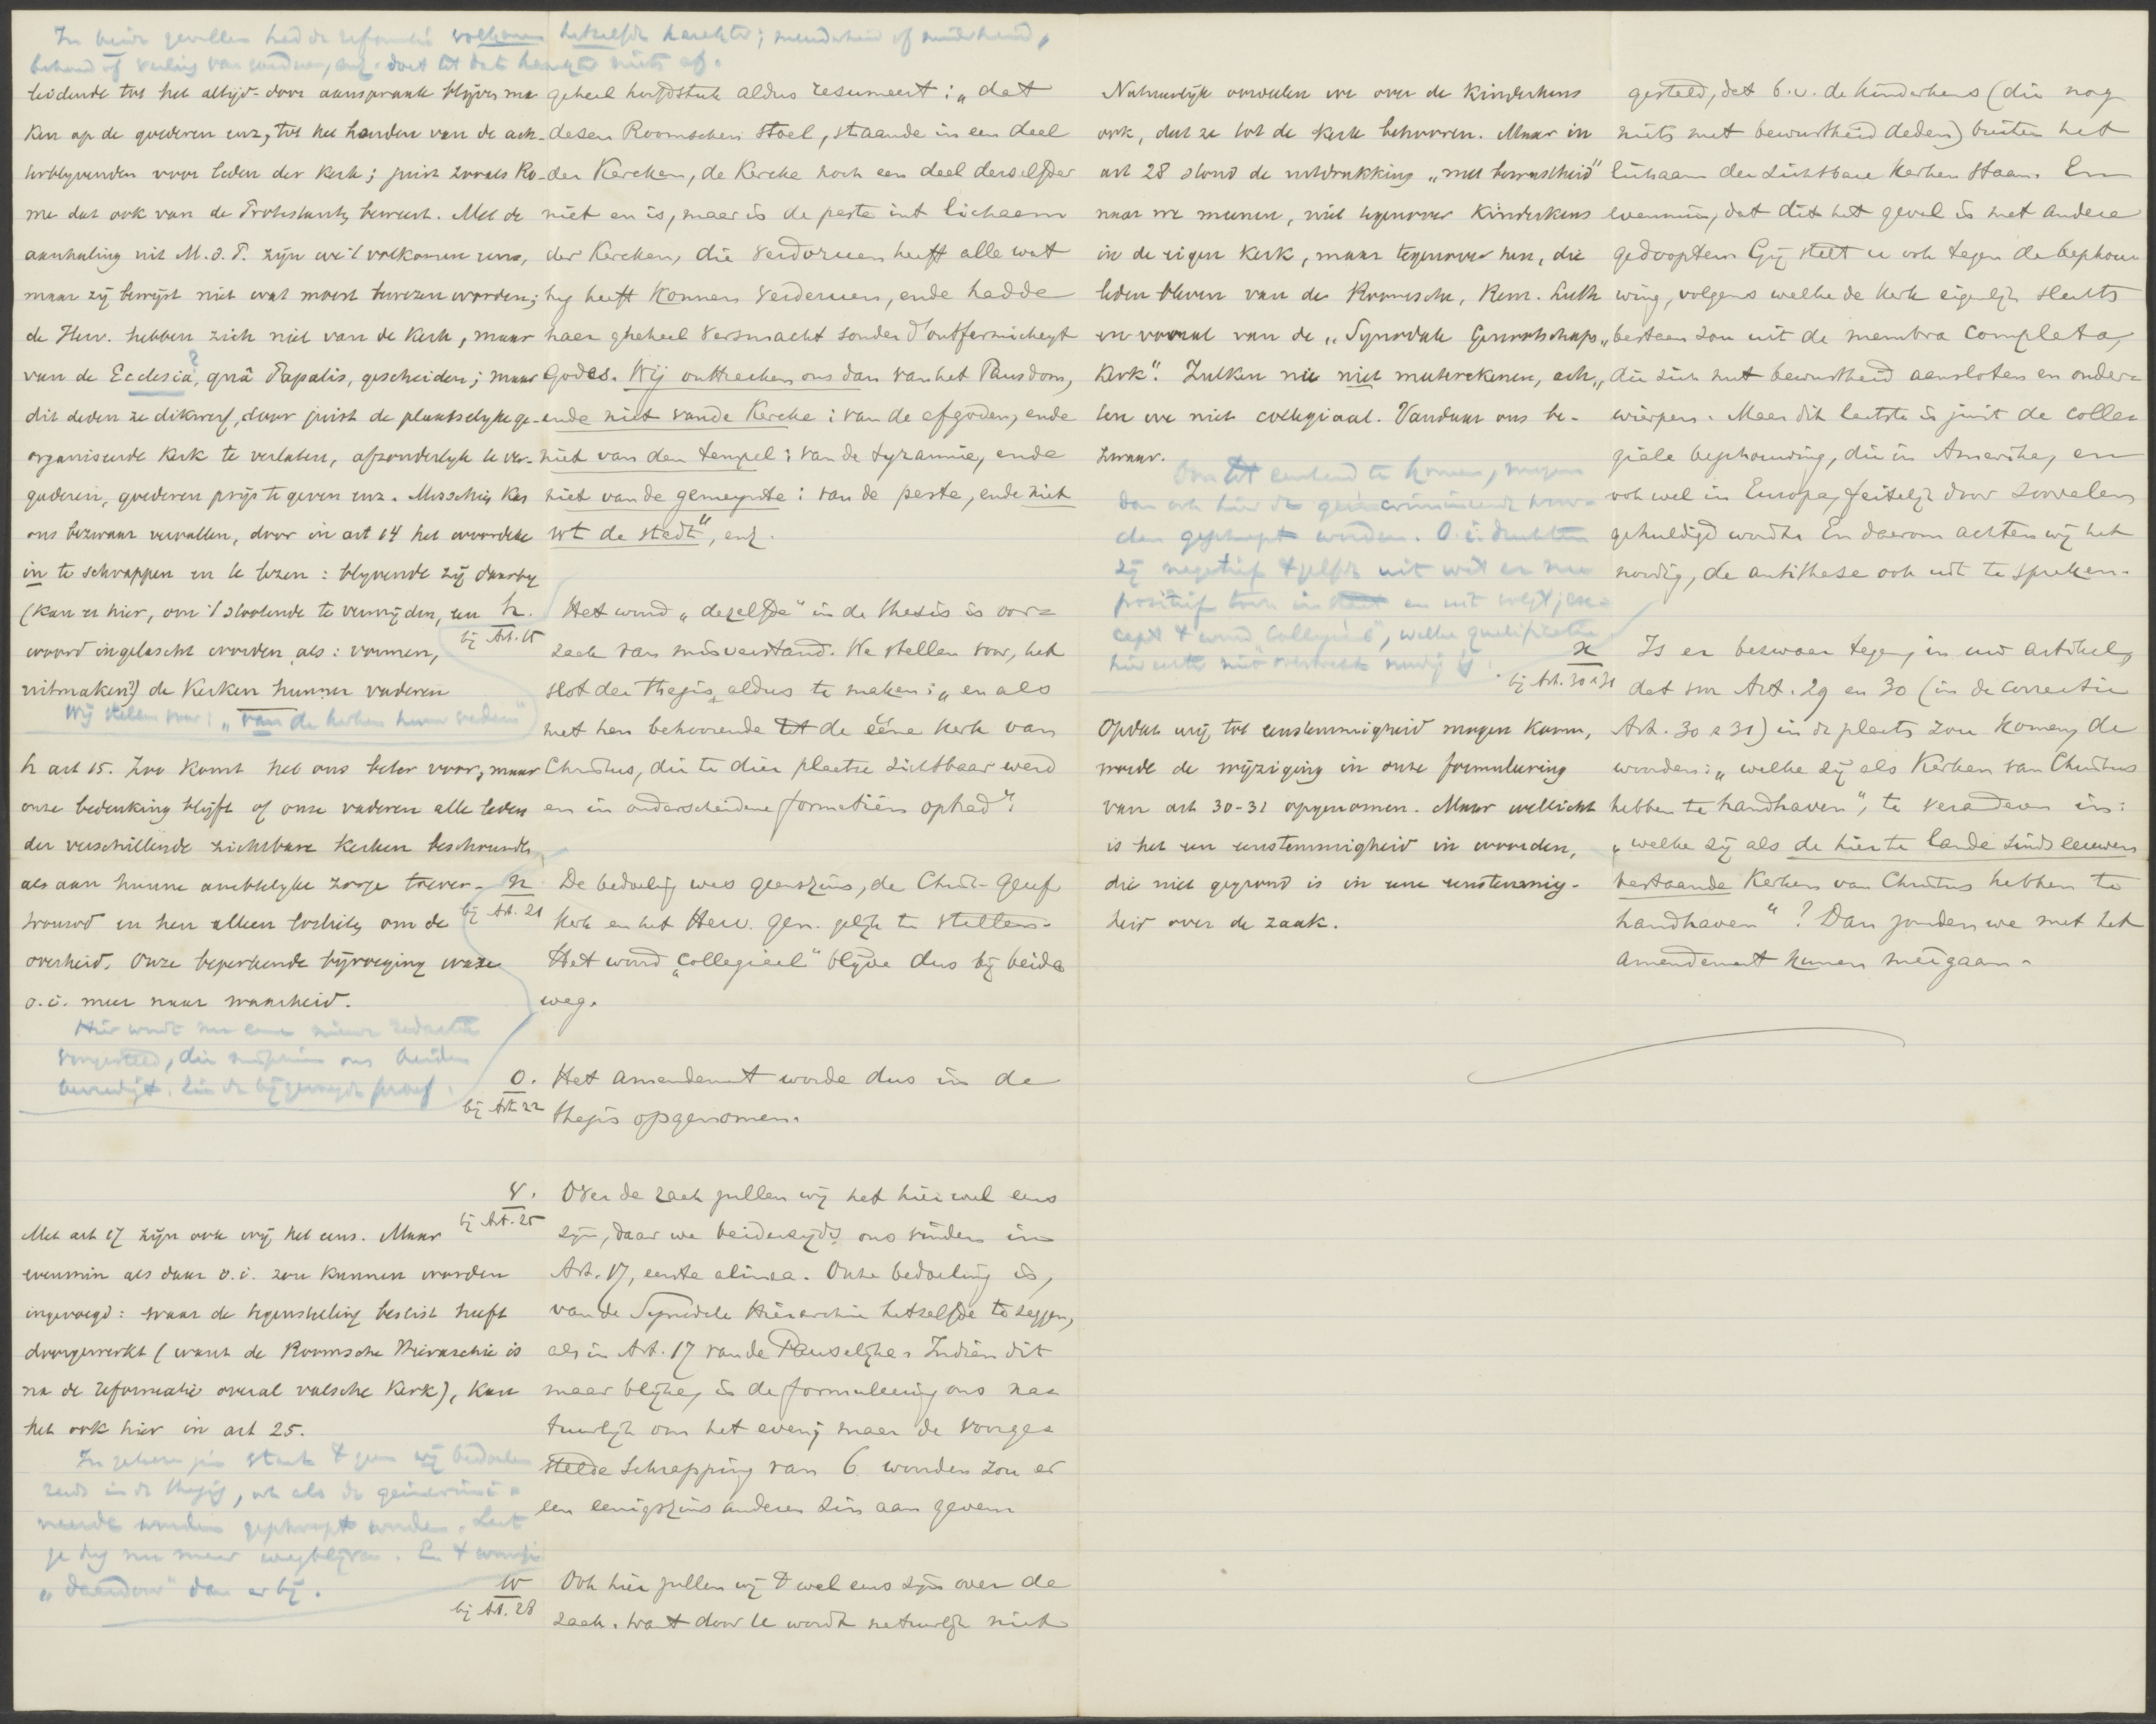 In beide gevallen had de reformatie volkomen hetzelfde karakter; meerderheid of minderheid,
behoud of verlies van goederen, enz. doet tot dat karakter niets af.
leidende tot het altijd-door aanspraak blijven ma
ken op de goederen enz, tot het houden van de ach-
terblyvenden voor leden der kerk; juist zooals Ro-
me dat ook van de Protestants beweert. Met de
aanhaling uit M. d. T. zijn we 't volkomen eens,
maar zij bewijst niet wat moest bewezen worden;
de Herv. hebben zich niet van de kerk, maar
van de Ecclesia, quâ Papalis, gescheiden; maar
dit deden ze dikwerf, door juist de plaatselyke ge-
organiseerde kerk te verlaten, afzonderlyk te ver-
gaderen, goederen prijs te geven enz. Misschien kan
ons bezwaar vervallen, door in art 14 het woordeke
in te schrappen en te lezen: blyvende zij daarby
(kan er hier, om 't stootende te vermijden, een
woord ingelascht worden als: vormen,
uitmaken?) de Kerken hunner vaderen
Wij stellen voor: „van de kerken hunner vaderen"
h art 15. Zoo komt het ons beter voor, maar
onze bedenking blijft of onze vaderen alle leden
der verschillende zichtbare Kerken beschouwden
als aan hunne ambtelyke zorge toever-
trouwd en hen alleen toeliete om de
overheid. Onze beperkende bijvoeging ware
o.i. meer naar waarheid.
Hier wordt nu eene nieuwe redactie
voorgesteld, die misschien ons beiden
bevredigt. Zie de bijgevoegde proef.
Met art 17 zijn ook wij het eens. Maar
evenmin als daar o.i. zou kunnen worden
ingevoegd: waar de tegenstelling beslist heeft
doorgewerkt (want de Roomsche Hierarchie is
na de reformatie overal valsche kerk), kan
het ook hier in art 25.
In zekeren zin staat 't geen wij bedoelen
reeds in de thesis, ook als de geincrimi-
neerde woorden geschrapt worden. Laat
ze dus nu maar wegblijven. En 't woordje
„daardoor" dan er bij.
geheel hoofdstuk aldus resumeert: „dat
desen Roomschen Stoel, staande in een deel
der Kercken, de Kercke noch een deel derselfder
niet en is, maer is de peste int lichaem
der Kercken, die verdoruen heeft alle wat
hy heeft konnen verderuen, ende hadde
haer gheheel versmacht sonder d'ontfermicheyt
Godes. Wij onttrecken ons dan van het Pausdom,
ende niet vande Kercke: van de afgoden, ende
niet van den tempel: van de tyrannie, ende
niet van de gemeynte: van de peste, ende niet
wt de stadt", enz.
h.
bij Art. 15
Het woord „dezelfde" in de thesis is oor-
zaak van misverstand. We stellen voor, het
slot der thesis aldus te maken: „en als
met hen behoorende tot de ééne kerk van
Christus, die te dier plaatse zichtbaar werd
en in onderscheidene formatiën optrad".
n
bij Art. 21
De bedoeling was geenszins, de Christ. Geref.
Kerk en het Herv. Gen. gelijk te stellen.
Het woord „Collegieel" blijve dus bij beide
weg.
o.
bij Art. 22
Het amendement worde dus in de
thesis opgenomen.
v.
bij Art. 25
Over de zaak zullen wij het hier wel eens
zijn, daar we beiderzijds ons vinden in
Art. 17, eerste alinea. Onze bedoeling is,
van de Synodale Hierarchie hetzelfde te zeggen,
als in Art. 17 van de Pauselijke. Indien dit
maar blijke, is de formuleering ons na-
tuurlijk om het even; maar de voorge-
stelde schrapping van 6 woorden zou er
een eenigszins anderen zin aan geven
w
bij Art. 28
Ook hier zullen wij 't wel eens zijn over de
zaak. Want door U wordt natuurlijk niet
Natuurlijk oordeelen we over de kinderkens
ook, dat ze tot de kerk behooren. Maar in
art 28 stond de uitdrukking „met bewustheid"
naar we meenen, niet tegenover kinderkens
in de eigen kerk, maar tegenover hen, die
leden bleven van de Roomsche, Rem. Luth
en vooral van de „Synodale Genootschaps„
kerk". Zulken nu niet meeterekenen, ach„
ten we niet collegiaal. Vandaar ons be-
zwaar.
Om tot eenheid te komen, mogen
dan ook hier de geincrimineerde woor-
den geschrapt worden. O.i. drukken
zij negatief 'tzelfde uit wat er nu
positief
't woord „Collegieel", welke qualificatie
hier echter niet volstrekt noodig is.
Opdat wij tot eenstemmigheid mogen komen,
worde de wijziging in onze formuleering
van art 30-31 opgenomen. Maar wellicht
is het een eenstemmigheid in woorden,
die niet gegrond is in eene eenstemmig-
heid over de zaak.
gesteld, dat b.v. de kinderkens (die nog
niets met bewustheid deden) buiten het
lichaam der zichtbare kerken staan. En
evenmin, dat dit het geval is met andere
gedoopten. Gij stelt u ook tegen de beschou
wing, volgens welke de kerk eigenlijk slechts
bestaan zou uit de membra completa,
die zich met bewustheid aansloten en onder-
wierpen. Maar dit laatste is juist de colle-
giale beschouwing, die in Amerika, en
ook wel in Europa, feitelijk door zoovelen
gehuldigd wordt. En daarom achten wij het
noodig, de antithese ook uit te spreken.
x
bij Art. 30 & 31
Is er bezwaar tegen, in uw artikel,
dat voor Art. 29 en 30 (in de correctie
Art. 30 & 31) in de plaats zou komen, de
woorden: „welke zij als Kerken van Christus
hebben te handhaven", te veranderen in:
„welke zij als de hier te lande sinds eeuwen
bestaande Kerken van Christus hebben te
handhaven"? Dan zouden we met het
amendement kunnen meegaan.